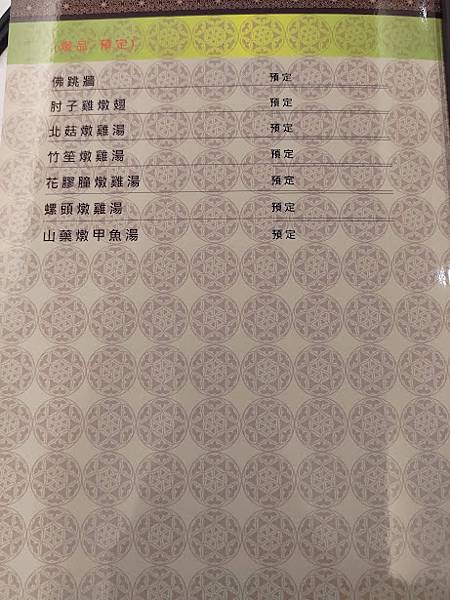 (燉品/預定)
佛跳牆 預定
肘子雞燉翅 預定
北菇燉雞湯 預定
竹笙燉雞湯 預定
花膠腫燉雞湯 預定
螺頭燉雞湯 預定
山藥燉甲魚湯 預定